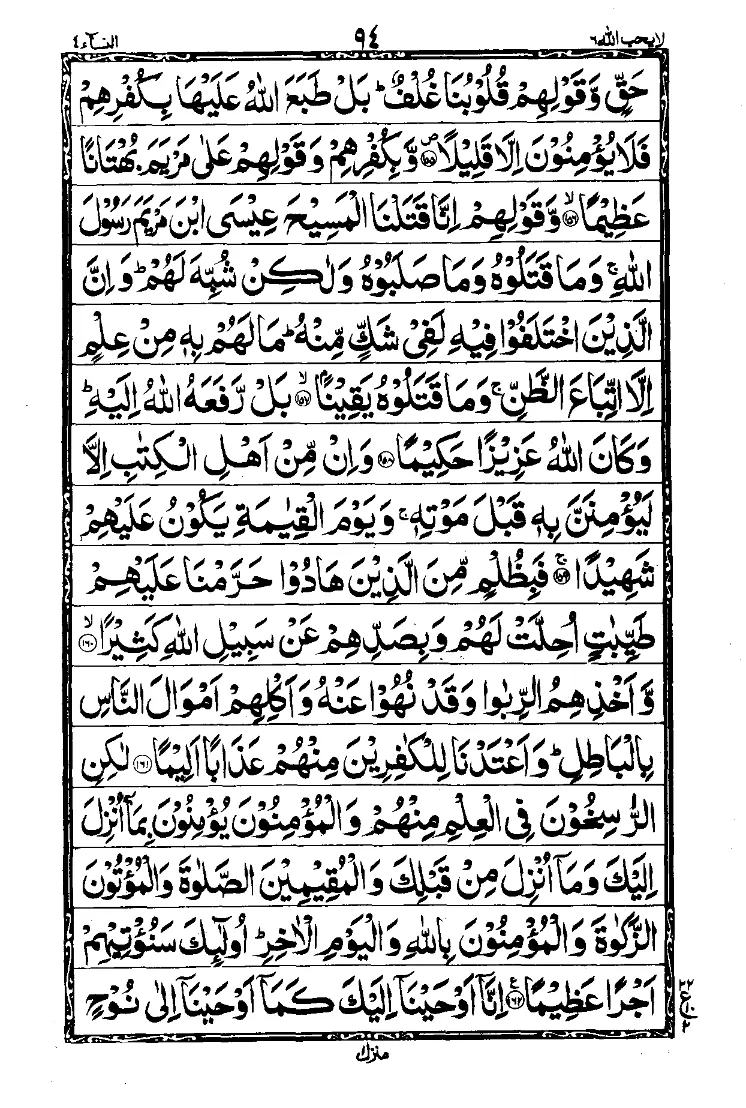 لا يحب الله ٦ ٩٤ النسآء ٤
حَقٍّ وَّقَوْلِهِمْ قُلُوْبُنَا غُلْفٌ ؕ بَلْ طَبَعَ اللّٰهُ عَلَيْهَا بِكُفْرِهِمْ
فَلَا يُؤْمِنُوْنَ اِلَّا قَلِيْلًا ۪﴿۱۵۵﴾ وَّبِكُفْرِهِمْ وَقَوْلِهِمْ عَلٰى مَرْيَمَ بُهْتَانًا
عَظِيْمًا ۙ﴿۱۵۶﴾ وَّقَوْلِهِمْ اِنَّا قَتَلْنَا الْمَسِيْحَ عِيْسَى ابْنَ مَرْيَمَ رَسُوْلَ
اللّٰهِ ۚ وَمَا قَتَلُوْهُ وَمَا صَلَبُوْهُ وَلٰكِنْ شُبِّهَ لَهُمْ ؕ وَاِنَّ
الَّذِيْنَ اخْتَلَفُوْا فِيْهِ لَفِيْ شَكٍّ مِّنْهُ ؕ مَا لَهُمْ بِهٖ مِنْ عِلْمٍ
اِلَّا اتِّبَاعَ الظَّنِّ ۚ وَمَا قَتَلُوْهُ يَقِيْنًۢا ۙ﴿۱۵۷﴾ بَلْ رَّفَعَهُ اللّٰهُ اِلَيْهِ ؕ
وَكَانَ اللّٰهُ عَزِيْزًا حَكِيْمًا ﴿۱۵۸﴾ وَاِنْ مِّنْ اَهْلِ الْكِتٰبِ اِلَّا
لَيُؤْمِنَنَّ بِهٖ قَبْلَ مَوْتِهٖ ۚ وَيَوْمَ الْقِيٰمَةِ يَكُوْنُ عَلَيْهِمْ
شَهِيْدًا ۚ﴿۱۵۹﴾ فَبِظُلْمٍ مِّنَ الَّذِيْنَ هَادُوْا حَرَّمْنَا عَلَيْهِمْ
طَيِّبٰتٍ اُحِلَّتْ لَهُمْ وَبِصَدِّهِمْ عَنْ سَبِيْلِ اللّٰهِ كَثِيْرًا ۙ﴿۱۶۰﴾
وَّاَخْذِهِمُ الرِّبٰوا وَقَدْ نُهُوْا عَنْهُ وَاَكْلِهِمْ اَمْوَالَ النَّاسِ
بِالْبَاطِلِ ؕ وَاَعْتَدْنَا لِلْكٰفِرِيْنَ مِنْهُمْ عَذَابًا اَلِيْمًا ﴿۱۶۱﴾ لٰكِنِ
الرّٰسِخُوْنَ فِي الْعِلْمِ مِنْهُمْ وَالْمُؤْمِنُوْنَ يُؤْمِنُوْنَ بِمَاۤ اُنْزِلَ
اِلَيْكَ وَمَاۤ اُنْزِلَ مِنْ قَبْلِكَ وَالْمُقِيْمِيْنَ الصَّلٰوةَ وَالْمُؤْتُوْنَ
الزَّكٰوةَ وَالْمُؤْمِنُوْنَ بِاللّٰهِ وَالْيَوْمِ الْاٰخِرِ ؕ اُولٰٓئِكَ سَنُؤْتِيْهِمْ
اَجْرًا عَظِيْمًا ﴿۱۶۲﴾ ع اِنَّاۤ اَوْحَيْنَاۤ اِلَيْكَ كَمَاۤ اَوْحَيْنَاۤ اِلٰى نُوْحٍ
٢٢ ع ١٠ ٢
منزل